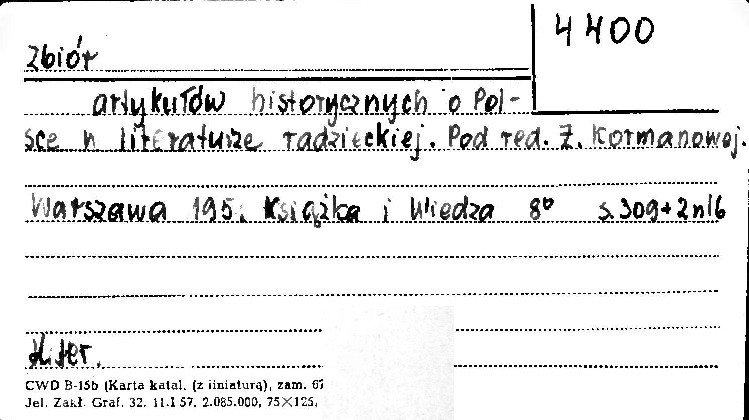 4400
Zbiór
artykułów historycznych o Pol-
sce w literaturze radzieckiej. Pod red. Ż. Kormanowej.
Warszawa 195. Książka i Wiedza 8° s. 309+2nlb
CWD B-15b (Karta katal. (z liniaturą), zam. 67
Jel. Zakł. Graf. 32. 11.I 57. 2.085.000, 75×125,